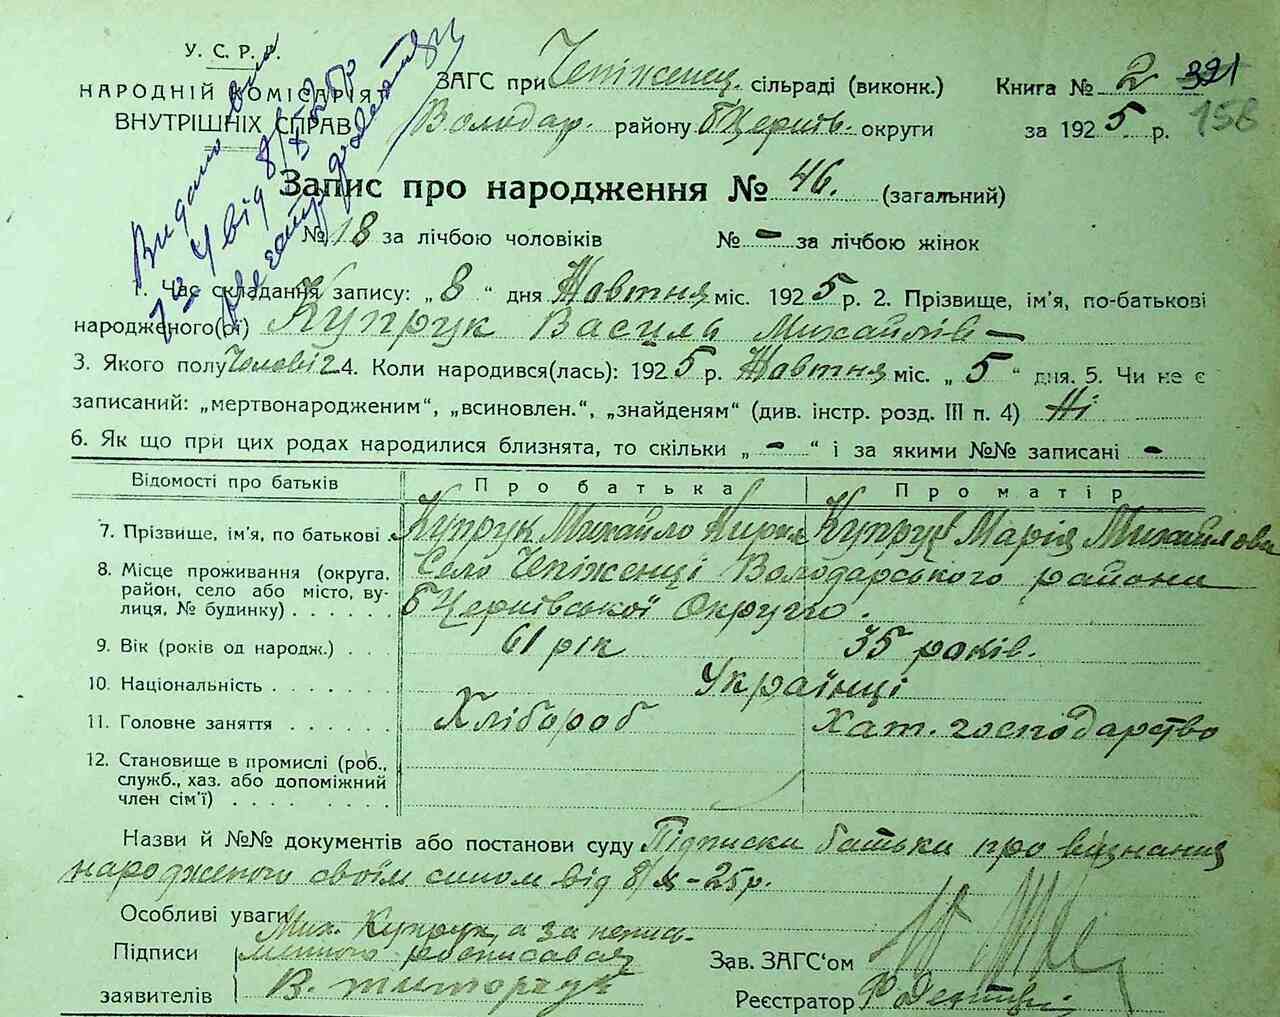 У. С. Р. Р.
НАРОДНІЙ КОМІСАРІЯТ
ВНУТРІШНІХ СПРАВ
ЗАГС при Чепіженец. сільраді (виконк.)
Володар. району бЦерків. округи
Книга № 2 321
за 1925 р. 158
Видано
від 8/X-25р
Запис про народження № 46. (загальний)
№ 18 за лічбою чоловіків № - за лічбою жінок
1. Час складання запису: „8“ дня Жовтня міс. 1925 р. 2. Прізвище, ім'я, по-батькові
народженого(ої) Купрук Василь Михайлів —
3. Якого полу Чолові 4. Коли народився(лась): 1925 р. Жовтня міс. „5“ дня. 5. Чи не є
записаний: „мертвонародженим“, „всиновлен.“, „знайденям“ (див. інстр. розд. III п. 4) Ні
6. Як що при цих родах народилися близнята, то скільки „-“ і за якими №№ записані -
Відомості про батьків Про батька Про матір
7. Прізвище, ім'я, по батькові . Купрук Михайло Кирил Купрук Марія Михайлова
8. Місце проживання (округа, район, село або місто, вулиця, № будинку) . . . . . Село Чепіженці Володарського района
бЦерківської Округи.
9. Вік (років од народж.) . . . 61 рік 35 років.
10. Національність . . . . . . . Українці
11. Головне заняття . . . . . . Хлібороб Хат. господарство
12. Становище в промислі (роб., служб., хаз. або допоміжний член сім'ї) . . . . . . . . .
Назви й №№ документів або постанови суду Підписки батька про візнання
народженого своїм сином від 8/X-25р.
Особливі уваги
Підписи заявителів Мих. Купрук, а за непись-
менного розписався
В.
Зав. ЗАГС'ом
Реєстратор